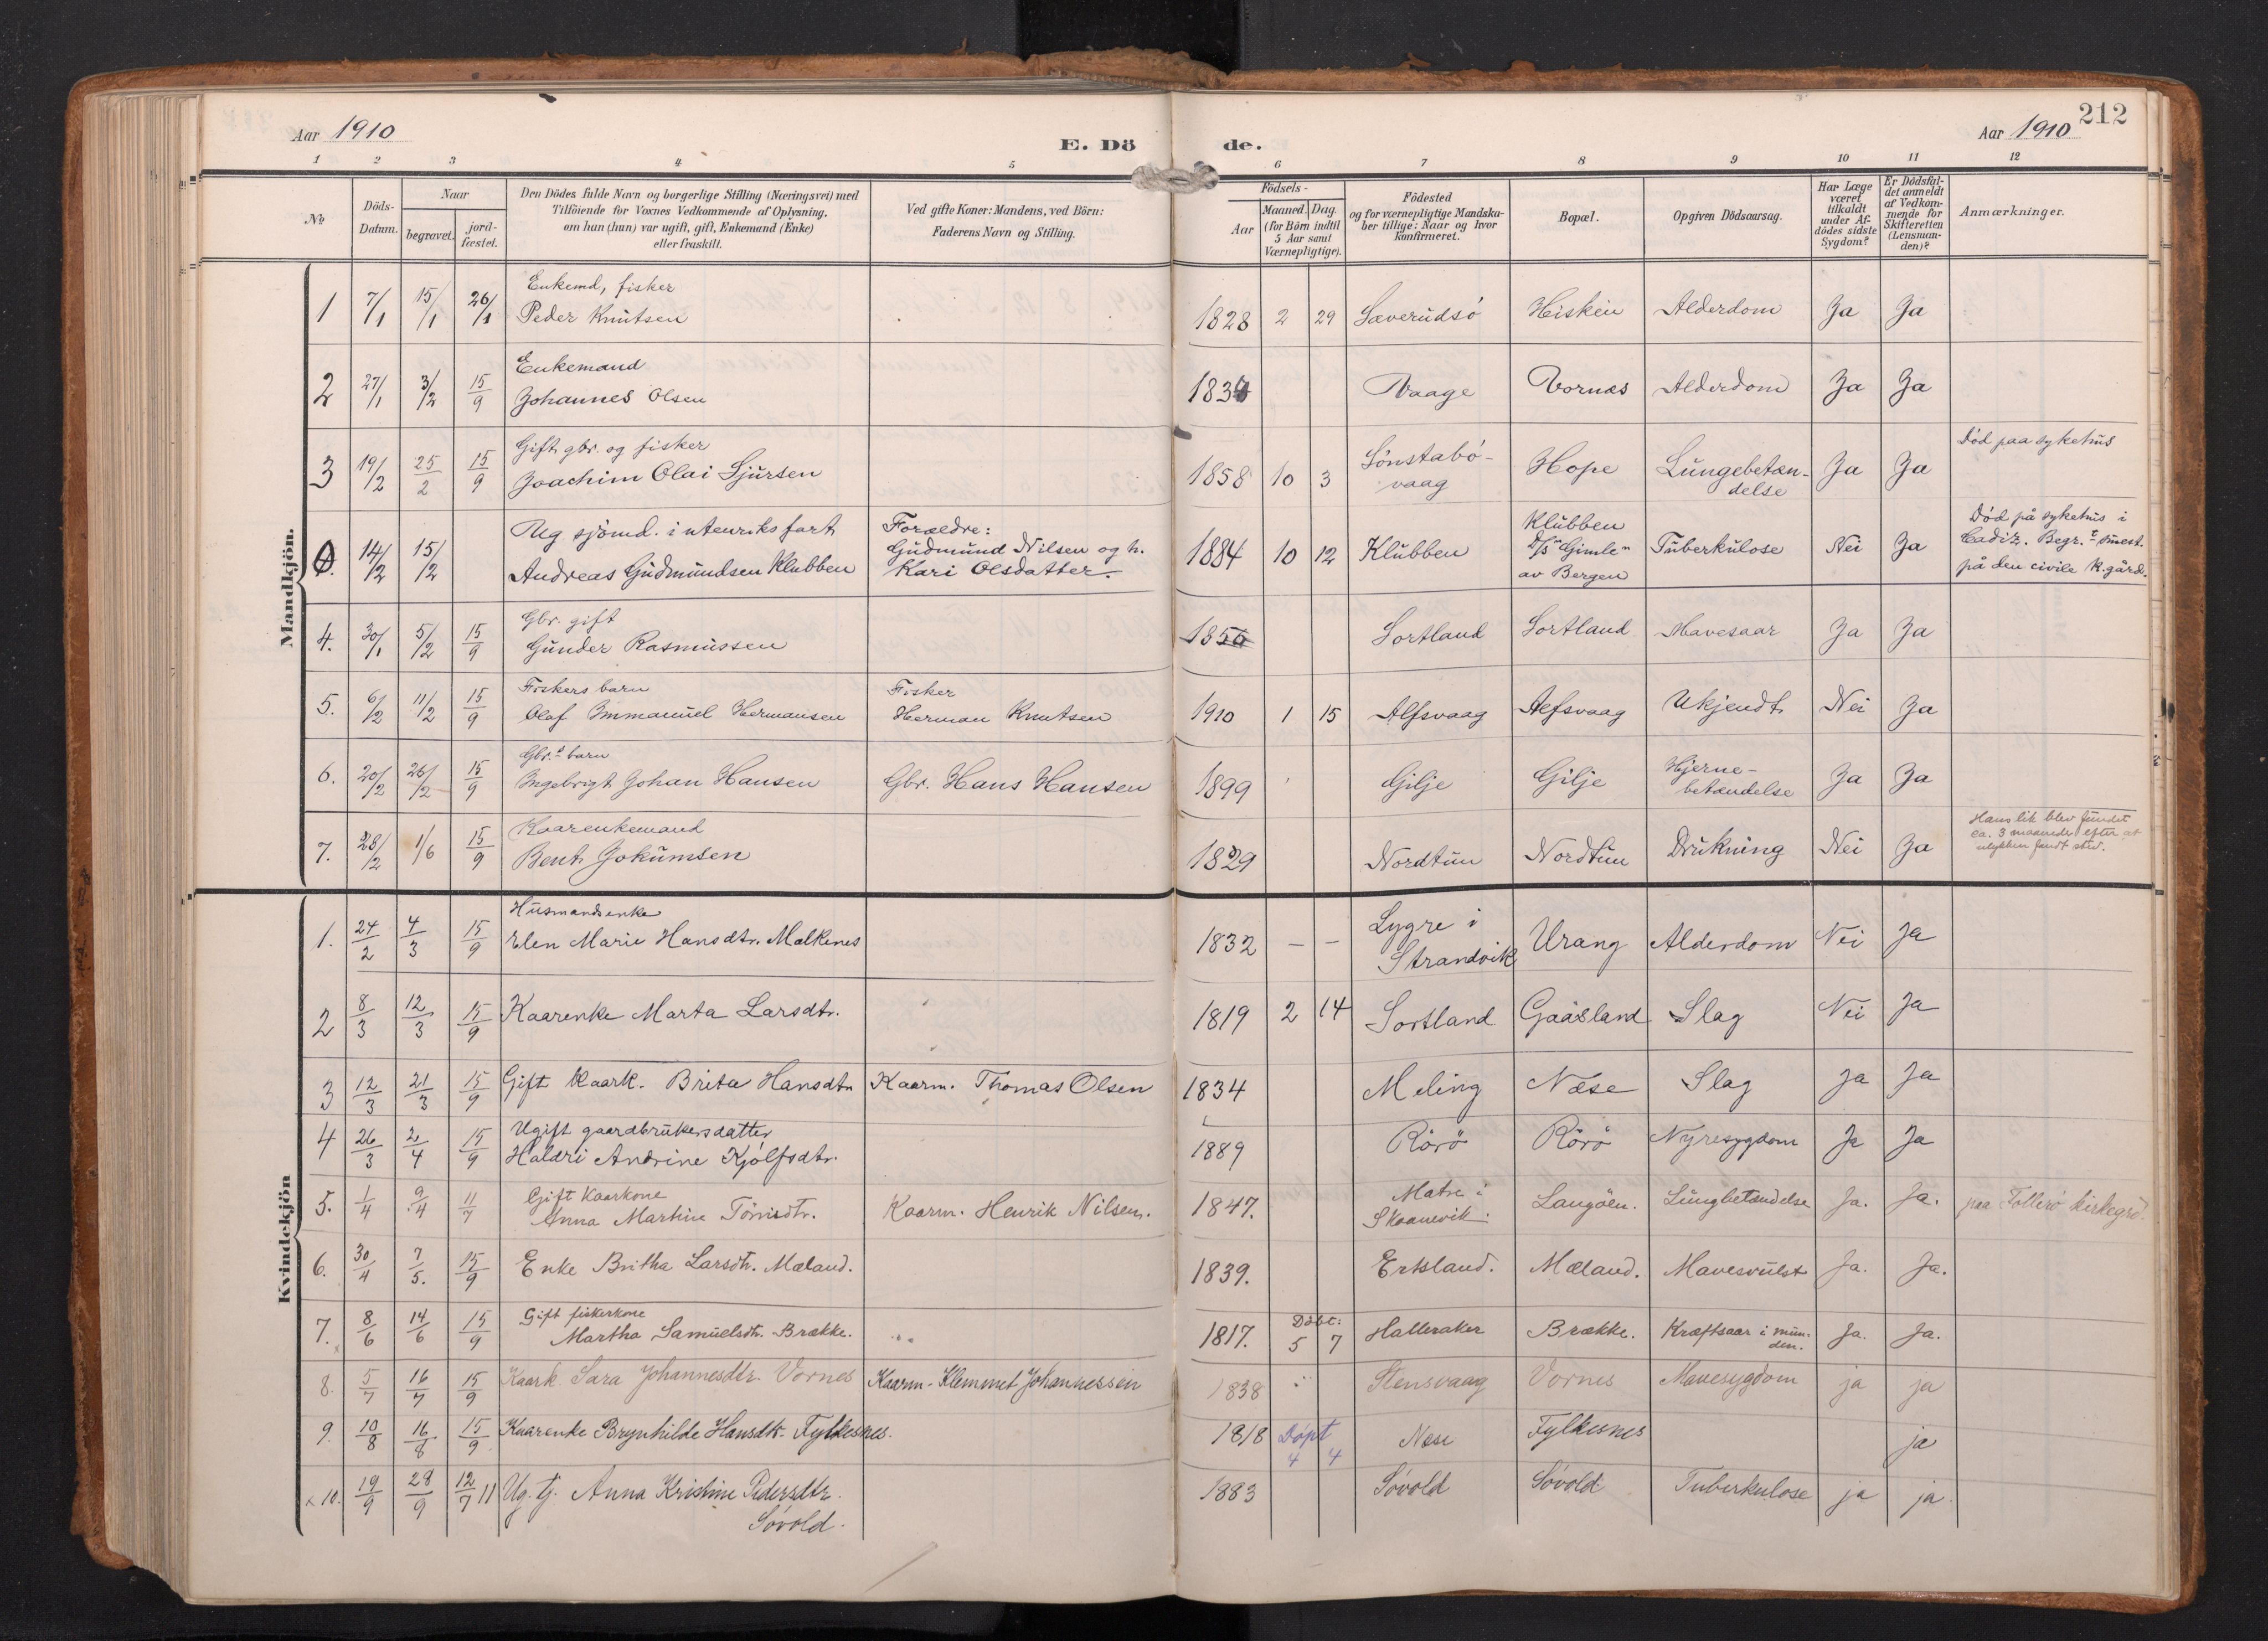 212
Aar 1910
E. Dö
de.
Aar 1910
1 2 3 4 5 6 7 8 9 10 11 12
No
Döds-
Datum.
Naar
begravet.
jord-
fæstet.
Den Dödes fulde Navn og borgerlige Stilling (Næringsvei) med
Tilföiende for Voxnes Vedkommende af Oplysning,
om han (hun) var ugift, gift, Enkemand (Enke)
eller fraskilt.
Ved gifte Koner: Mandens, ved Börn:
Faderens Navn og Stilling.
Födsels-
Aar
Maaned.
Dag.
(for Börn indtil
5 Aar samt
Værnepligtige).
Födested
og for værnepligtige Mandska-
ber tillige: Naar og hvor
konfirmeret.
Bopæl.
Opgiven Dödsaarsag.
Har Læge
været
tilkaldt
under Af-
dödes sidste
Sygdom?
Er Dödsfal-
det anmeldt
af Vedkom-
mende for
Skifteretten
(Lensman-
den)?
Anmærkninger.
Mandkjön.
Enkemd, fisker
1 7/1 15/1 26/1 Peder Knutsen 1828 2 29 Sæverudsö Hisken Alderdom Ja Ja
Enkemand
2 27/1 3/2 15/9 Johannes Olsen 1834 Vaage Vornæs Alderdom Ja Ja
Gift gbr. og fisker Död paa sykehus
3 19/2 25/2 15/9 Joachim Olai Sjursen 1858 10 3 Sönstabö- Hope Lungebetæn- Ja Ja
vaag delse
Ug sjömd. i utenriks fart Forældre: Klubben Död på sykehus i
0. 14/2 15/2 Gudmund Nilsen og h. 1884 10 12 Klubben D/S "Gimle" Tuberkulose Nei Ja Cadiz. Begr. smest.
Andreas Gudmundsen Klubben Kari Olsdatter. av Bergen på den civile k.gård.
Gbr. gift
4. 30/1 5/2 15/9 Gunder Rasmussen 1850 Sortland Sortland Mavesaar Ja Ja
Fiskers barn Fisker
5. 6/2 11/2 15/9 Olaf Immanuel Hermansen Herman Knutsen 1910 1 15 Alfsvaag Aefsvaag Ukjendt Nei Ja
Gbr.s barn
6. 20/2 26/2 15/9 Ingebrigt Johan Hansen Gbr. Hans Hansen 1899 Gilje Gilje Hjerne- Ja Ja
betændelse
Kaarenkemand Hans lik blev fundet
7. 28/2 1/6 15/9 Bent Jokumsen 1829 Nordtun Nordtun Drukning Nei Ja ca. 3 maaneder efter at
ulykken fandt sted.
Kvindekjön
Husmandsenke Lygre i
1. 24/2 4/3 15/9 Elen Marie Hansdtr. Mælkenes 1832 – – Strandvik Urang Alderdom Nei Ja
2 8/3 12/3 15/9 Kaarenke Marta Larsdtr. 1819 2 14 Sortland Gaasland Slag Nei Ja
3 12/3 21/3 15/9 Gift Kaark. Brita Hansdtr Kaarm. Thomas Olsen 1834 Meling Næse Slag Ja Ja
Ugift gaardbrukersdatter
4 26/3 2/4 15/9 Haldri Andrine Kjolfsdtr. 1889 Rörö Rörö Nyresygdom Ja Ja
Gift Kaarkone Matre i
5. 1/4 9/4 11/7 Anna Martine Tönnisdtr. Kaarm. Henrik Nilsen. 1847. Skaanevik. Langöen. Lungbetændelse Ja. Ja. paa Tollerö kirkegrd.
6. 30/4 7/5. 15/9 Enke Britha Larsdtr. Mæland. 1839. Erksland. Mæland. Mavesvulst Ja. Ja.
Gift fiskerkone Döbt:
7. 8/6 14/6 15/9 Martha Samuelsdtr. Brække. 1817. 5 7 Halleraker Brække. Kræftsaar i mun- Ja. Ja.
den.
8. 5/7 16/7 15/9 Kaark. Sara Johannesdtr. Vornes Kaarm. Klemmet Johannessen 1838 Stensvaag Vornes Mavesygdom ja ja
9. 10/8 16/8 15/9 Kaarenke Brynhilde Hansdtr. Fylkesnes. 1818 Döpt Næse Fylkesnes ja
4 4
x 10. 19/9 28/9 12/7 11 Ug. tj. Anna Kristine Pedersdtr. 1883 Sövold Sövold Tuberkulose ja ja.
Sövold.